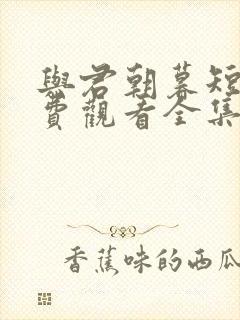 與君朝暮短
費觀看全集
香蕉味的西瓜